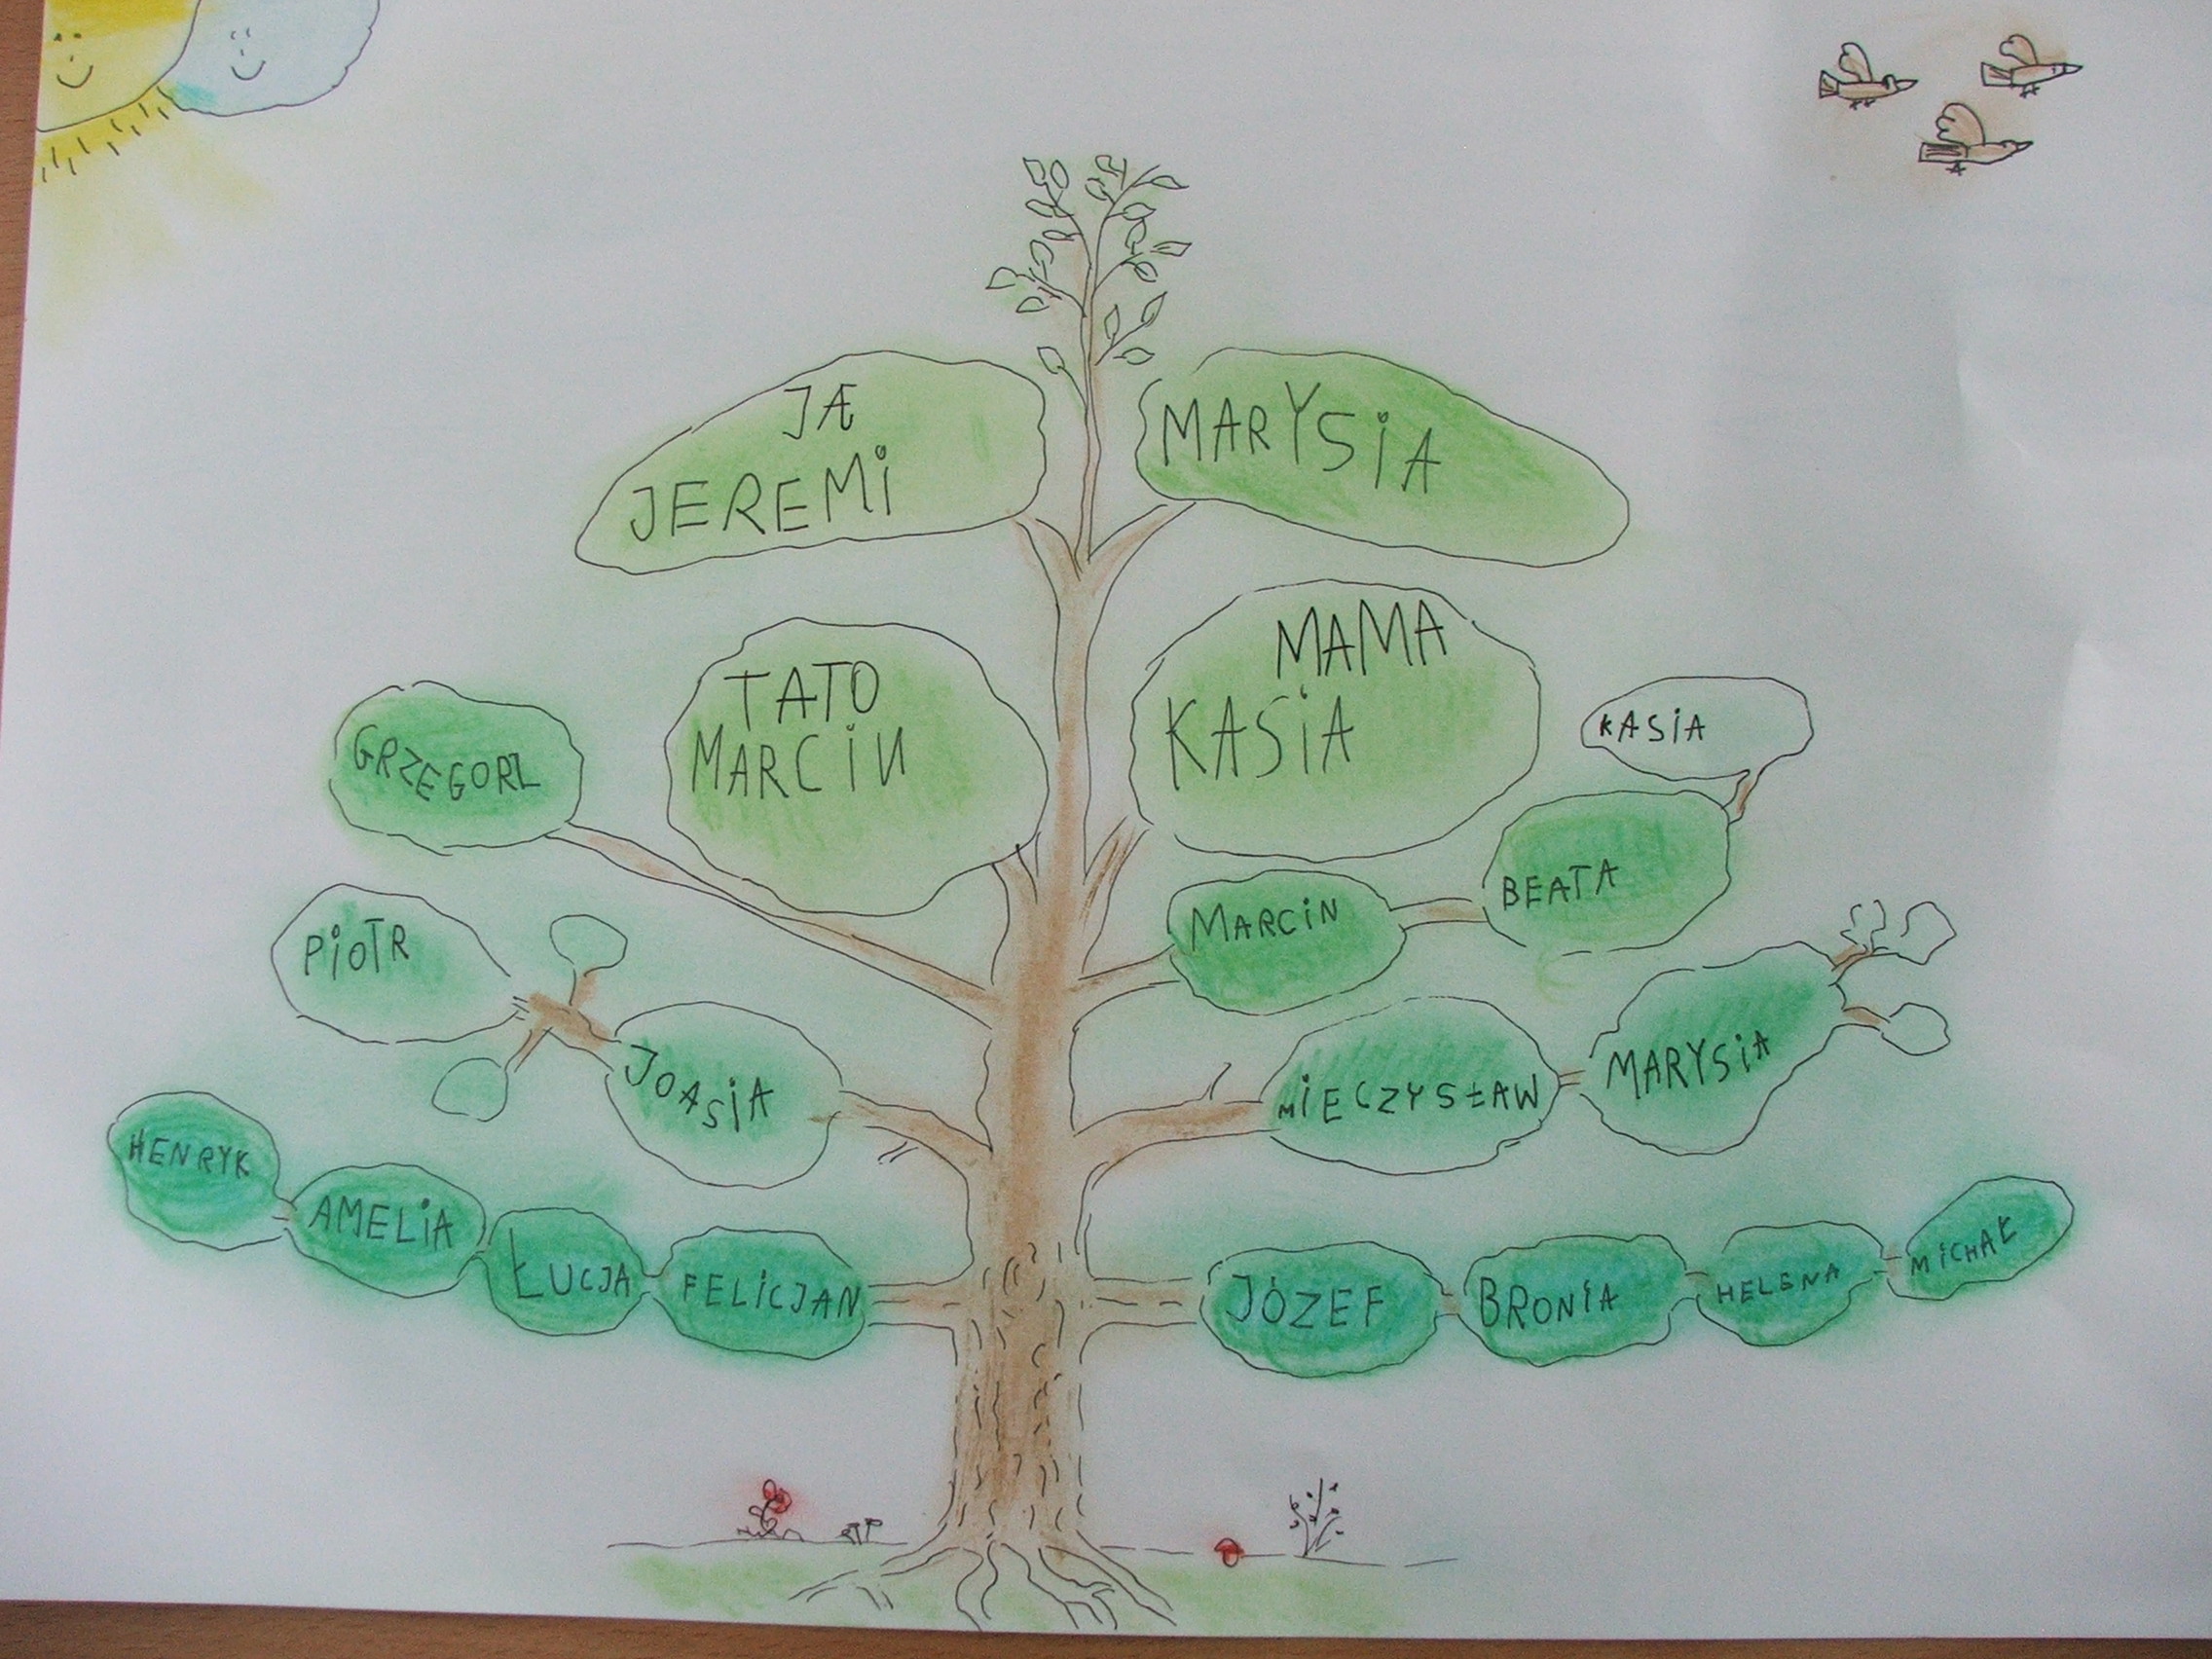 JA
JEREMI
MARYSIA
TATO
MARCIN
MAMA
KASIA
GRZEGORZ
KASIA
BEATA
MARCIN
PIOTR
JOASIA
MIECZYSŁAW
MARYSIA
HENRYK
AMELIA
ŁUCJA
FELICJAN
JÓZEF
BRONIA
HELENA
MICHAŁ